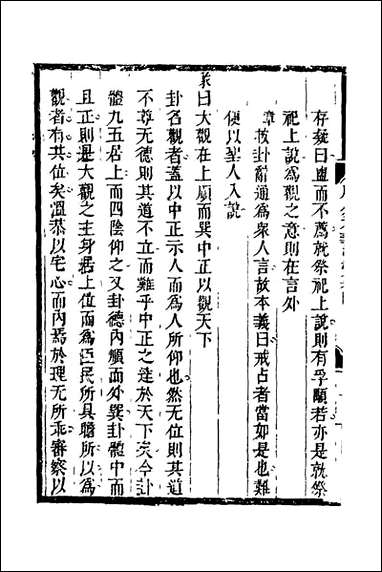 存疑曰盥而不薦就祭祀上說則有孚顒若亦是就祭
祀上說爲觀之意則在言外
章按卦辭通爲衆人言故本義曰戒占者當如是也難
便以聖人入說
彖曰大觀在上順而巽中正以觀天下
卦名觀者蓋以中正示人而爲人所仰也然無位則其道
不尊无德則其道不立而難乎中正之達於天下矣今卦
體九五居上而四陰仰之又卦德內順而外巽卦體中而
且正則是大觀之主身居上位而爲臣民所具瞻所以爲
觀者有其位矣溫恭以宅心而內焉於理无所乖審察以